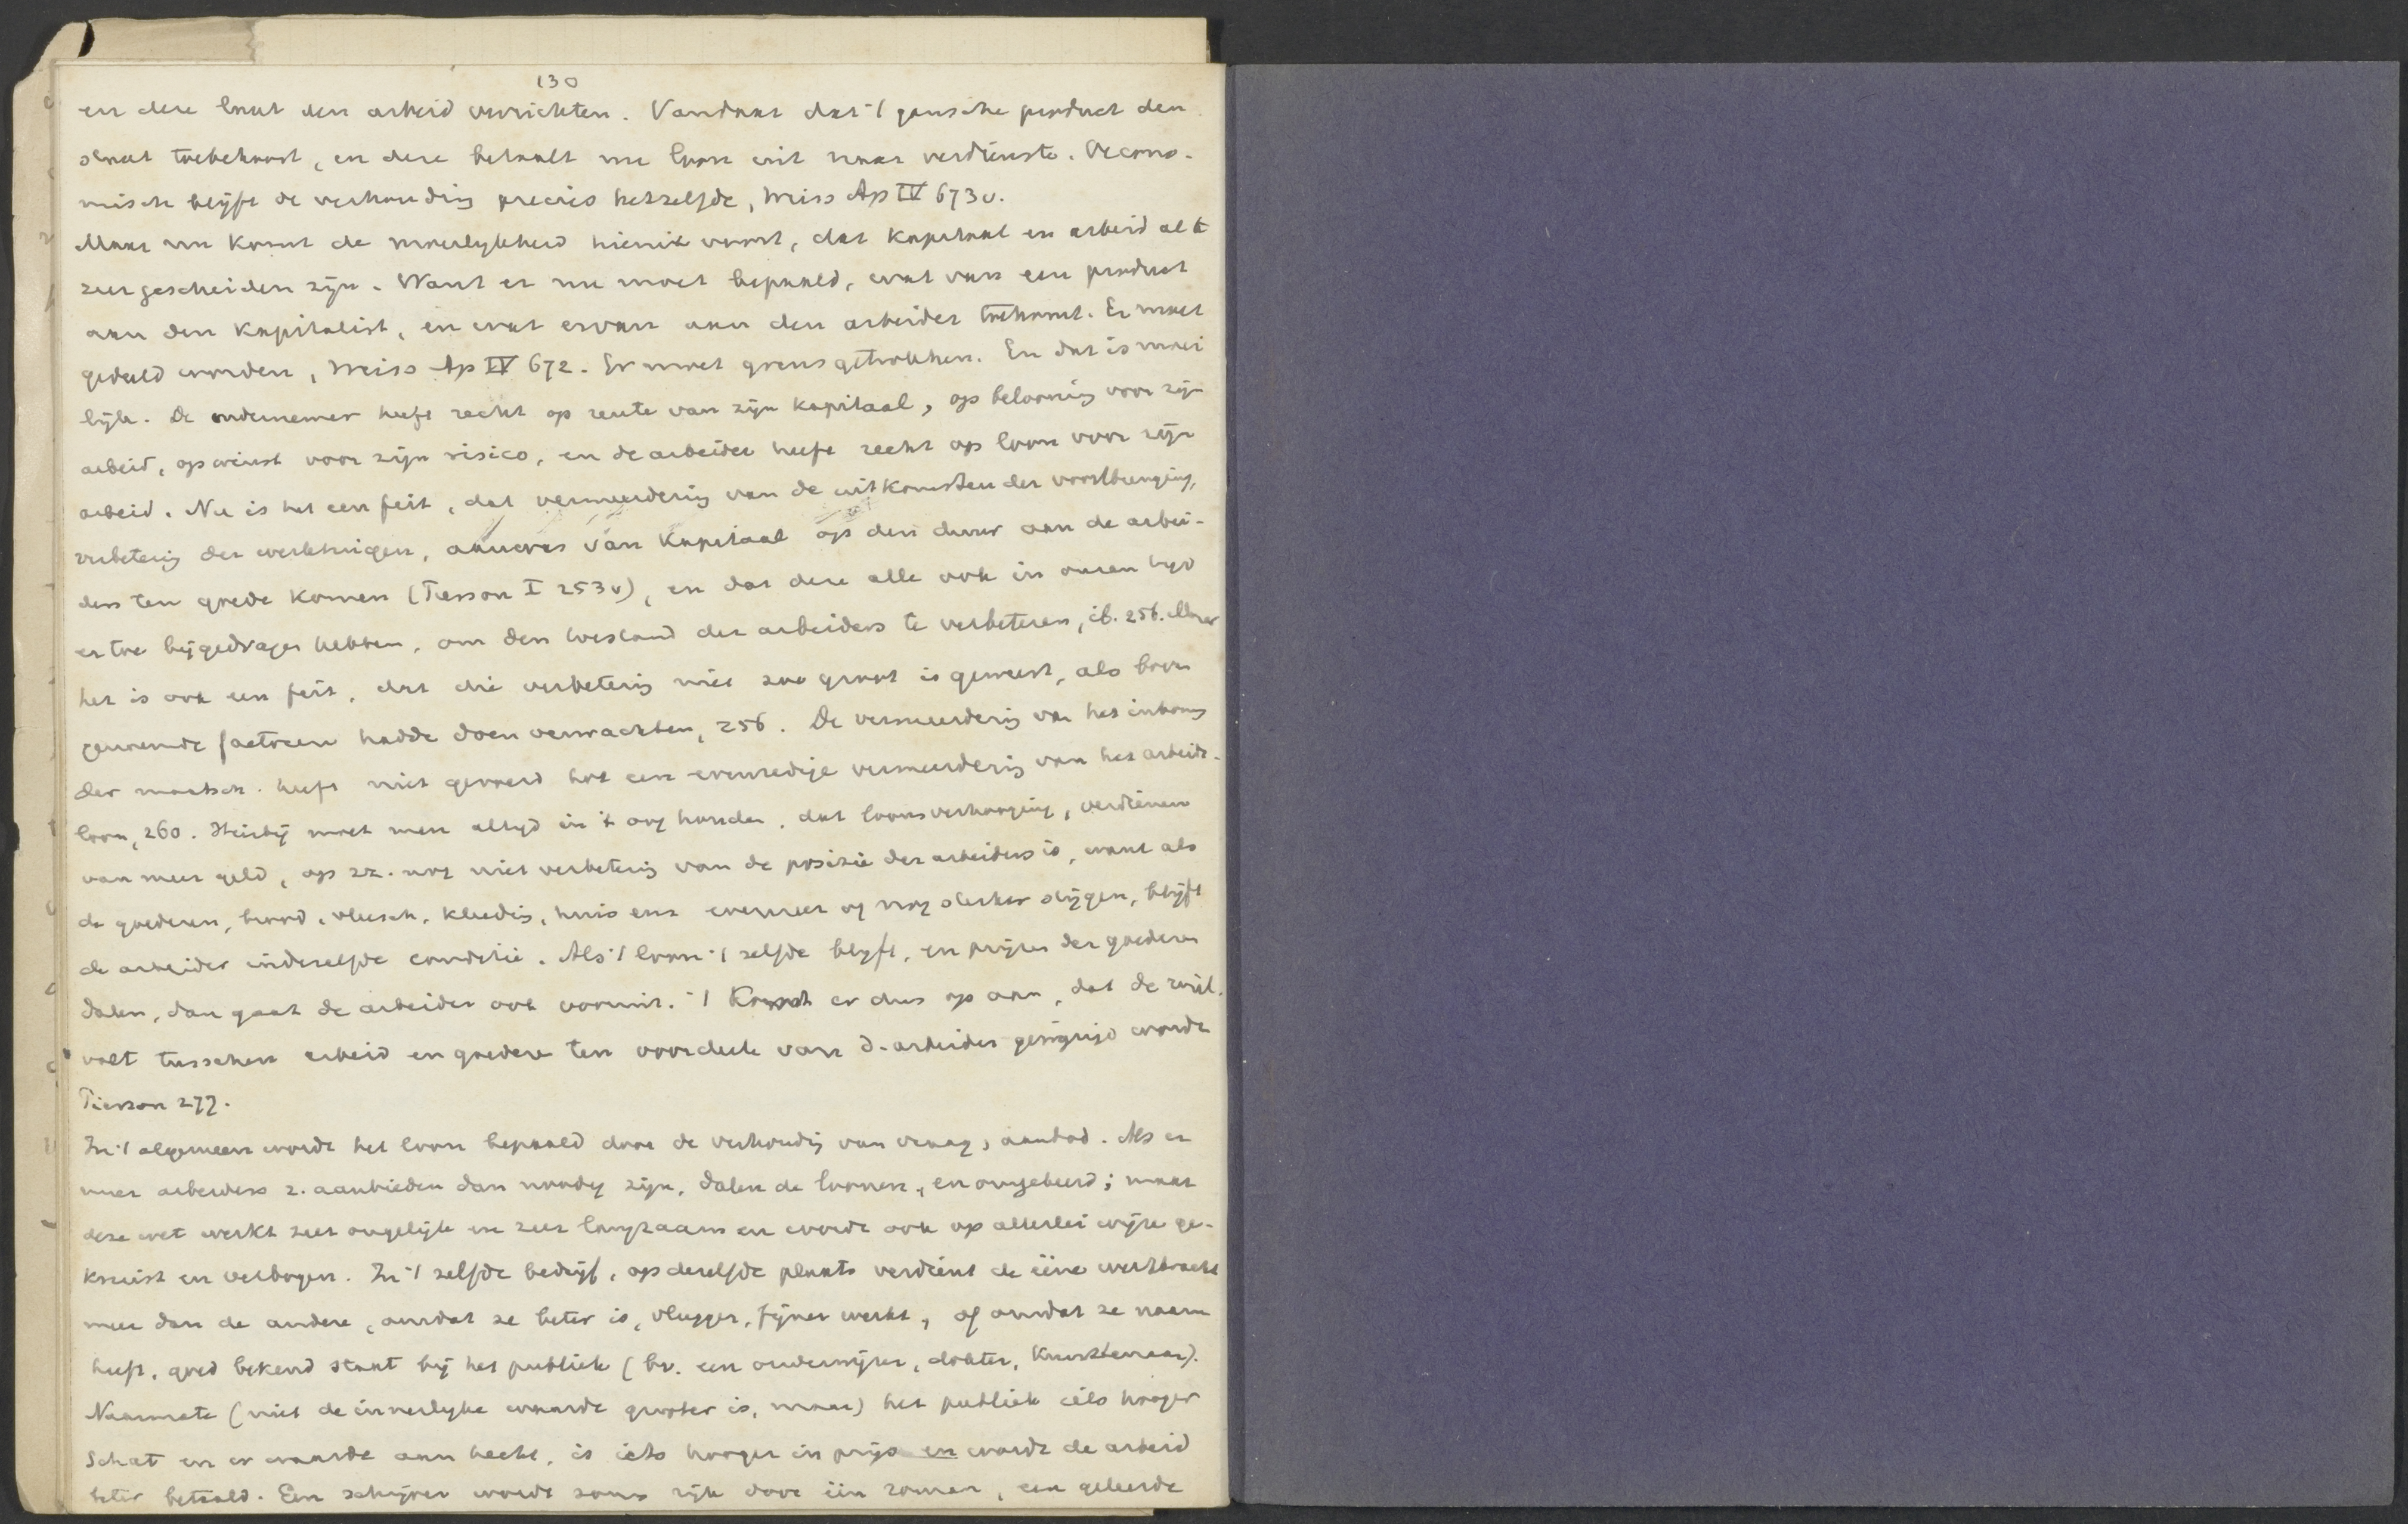 130
en deze laat den arbeid verrichten. Vandaar dat 't gansche product den
staat toebehoort, en deze betaalt nu loon uit naar verdienste. Oecono-
misch blijft de verhouding precies hetzelfde, Weiss Ap IV 673v.
Maar nu komt de moeilykheid hieruit voort, dat kapitaal en arbeid al te
zeer gescheiden zijn. Want er nu moet bepaald, wat van een product
aan den kapitalist, en wat ervan aan den arbeider toekomt. Er moet
gedeeld worden, Weiss Ap IV 672. Er moet grens getrokken. En dat is moei
lijk. De ondernemer heeft recht op rente van zijn kapitaal, op belooning voor zijn
arbeid, op winst voor zijn risico, en de arbeider heeft recht op loon voor zijn
arbeid. Nu is het een feit, dat vermeerdering van de uitkomsten der voortbrenging,
verbetering der werktuigen, aanwas van kapitaal op den duur aan de arbei-
ders ten goede komen (Pierson I 253v), en dat deze alle ook in onzen tijd
er toe bijgedragen hebben, om den toestand der arbeiders te verbeteren, ib. 256. Maar
het is ook een feit, dat die verbetering niet zoo groot is geweest, als boven
genoemde factoren hadde doen verwachten, 256. De vermeerdering van het inkomen
der maatsch. heeft niet gevoerd tot een evenredige vermeerdering van het arbeids-
loon, 260. Hierbij moet men altyd in 't oog houden, dat loonsverhooging, verdienen
van meer geld, op zz. nog niet verbetering van de positie der arbeiders is, want als
de goederen, brood, vleesch, kleeding, huis enz evenzeer of nog sterker stijgen, blijft
de arbeider in dezelfde conditie. Als 't loon 't zelfde blyft, en prijzen der goederen
dalen, dan gaat de arbeider ook vooruit. 't Komt er dus op aan, dat de ruil-
voet tusschen arbeid en goederen ten voordeele van d. arbeider gewijzigd wordt
Pierson 277.
In 't algemeen wordt het loon bepaald door de verhouding van vraag, aanbod. Als er
meer arbeiders z. aanbieden dan noodig zijn, dalen de loonen, en omgekeerd; maar
deze wet werkt zeer ongelijk en zeer langzaam en wordt ook op allerlei wijze ge-
kruist en verbogen. In 't zelfde bedrijf, op dezelfde plaats verdient de ééne werkkracht
meer dan de andere, omdat ze beter is, vlugger, fijner werkt, of omdat ze naam
heeft, goed bekend staat bij het publiek (bv. een onderwijzer, dokter, kunstenaar).
Naarmate (niet de innerlyke waarde grooter is, maar) het publiek iets hooger
schat en er waarde aan hecht, is iets hooger in prijs en wordt de arbeid
beter betaald. Een schrijver wordt soms rijk door één roman, een geleerde